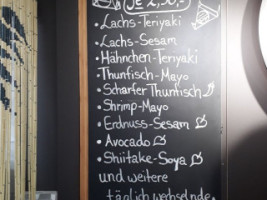 JE 2,50,-
• Lachs-Teriyaki
• Lachs-Sesam
• Hähnchen-Teriyaki
• Thunfisch-Mayo
• Scharfer Thunfisch
• Shrimp-Mayo
• Erdnuss-Sesam
• Avocado
• Shiitake-Soya
und weitere
täglich wechselnde